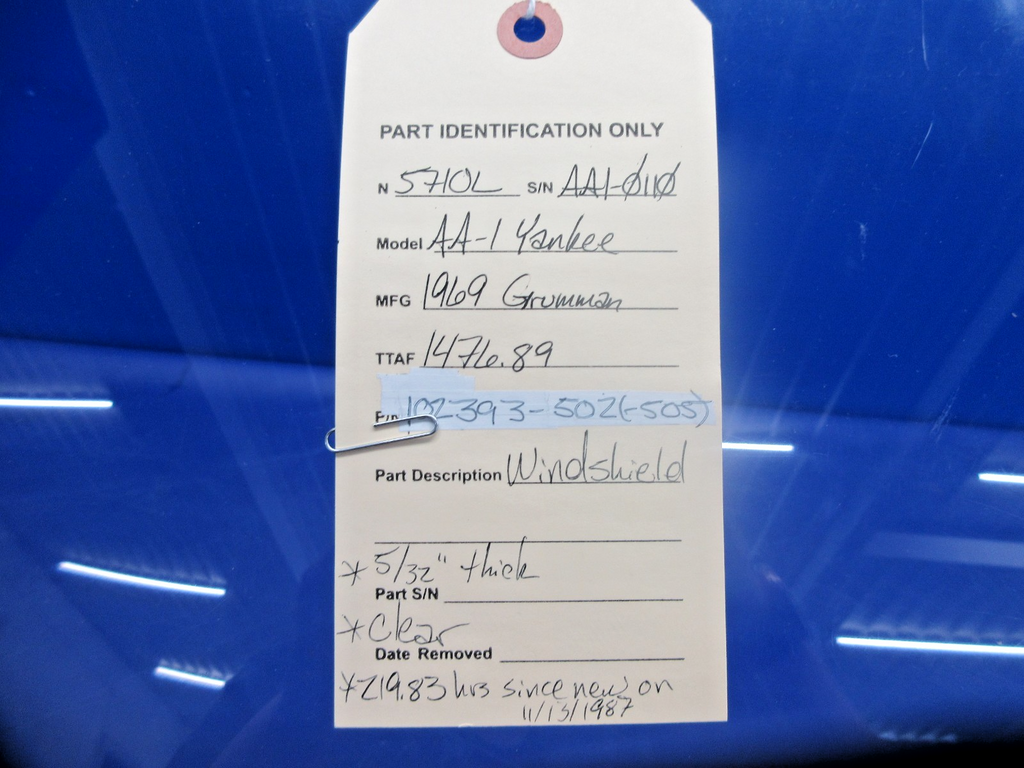 PART IDENTIFICATION ONLY
N 5710L S/N AA1-0110
Model AA-1 Yankee
MFG 1969 Grumman
TTAF 1476.89
P/N 102393-502(-505)
Part Description Windshield
* 5/32" thick
Part S/N
* Clear
Date Removed
* 219.83 hrs since new on
11/13/1987